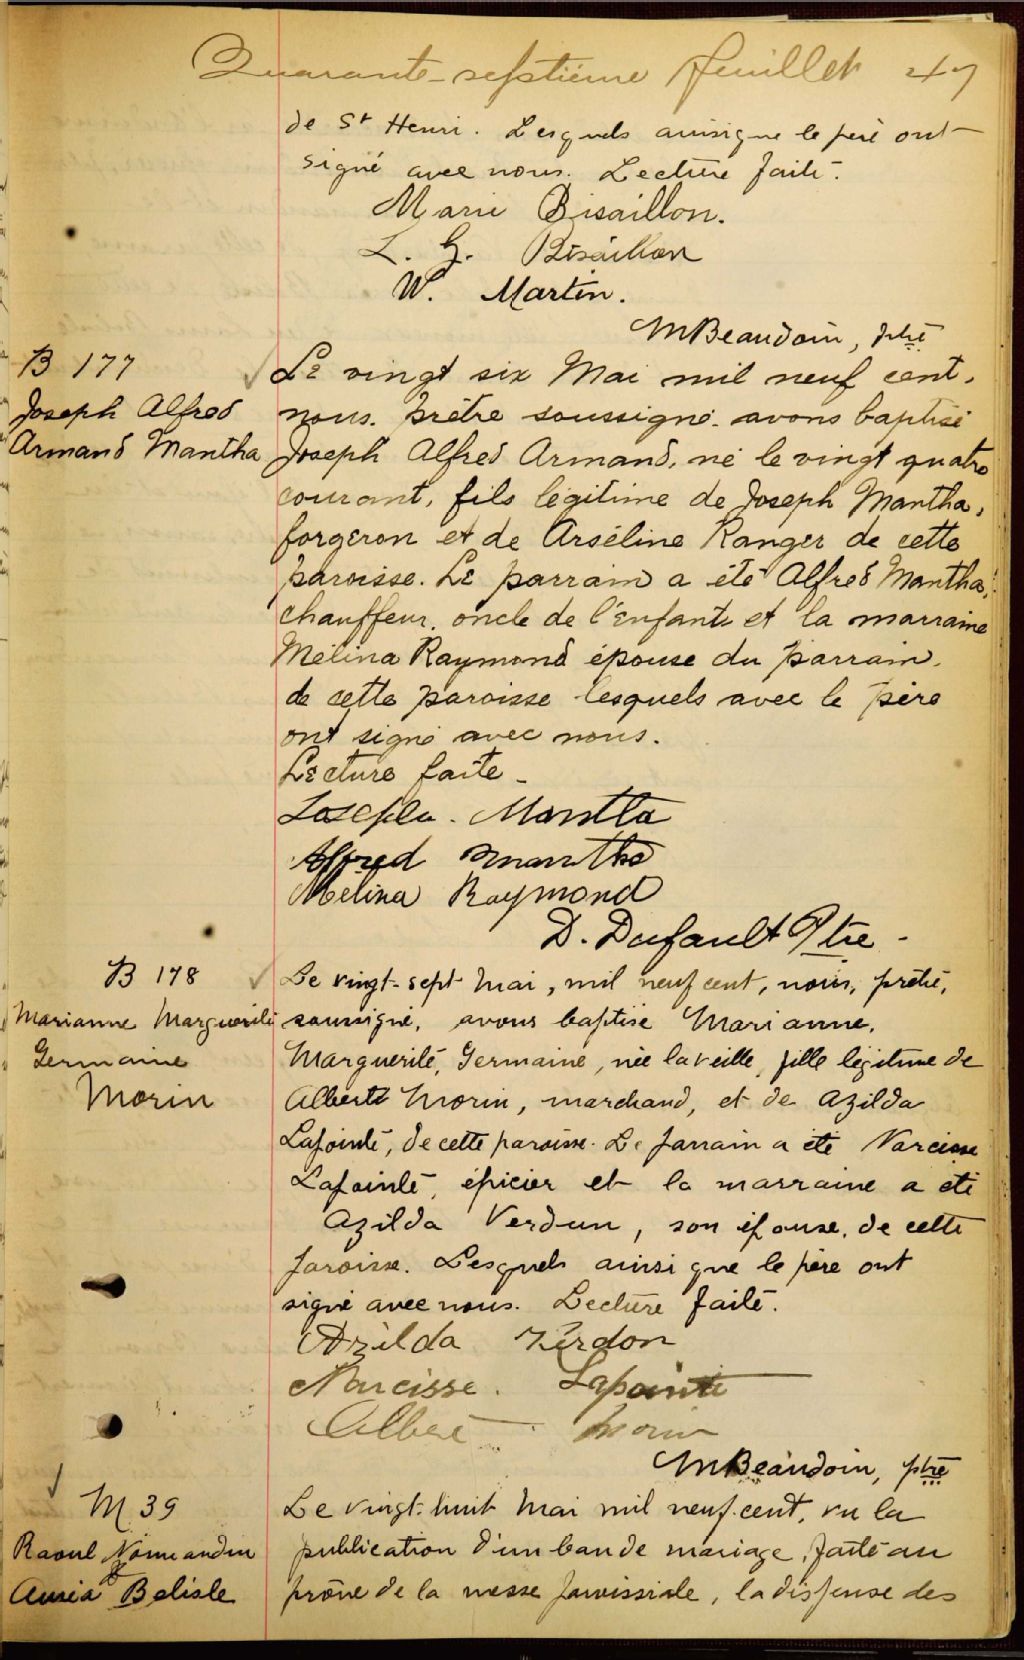 Quarante-septième feuillet 47
de St Henri. Lesquels ainsi que le père ont
signé avec nous. Lecture faite.
Marie Bisaillon.
L. G. Bisaillon
W. Martin.
MBeaudoin, ptre
B 177
Joseph Alfred
Armand Mantha
Le vingt six Mai mil neuf cent,
nous. prêtre soussigné. avons baptisé
Joseph Alfred Armand, né le vingt quatre
courant, fils légitime de Joseph Mantha,
forgeron et de Arséline Ranger de cette
paroisse. Le parrain a été Alfred Mantha,
chauffeur, oncle de l'enfant et la marraine
Mélina Raymond épouse du parrain,
de cette paroisse lesquels avec le père
ont signé avec nous.
Lecture faite -
Joseph. Mantha
Alfred Mantha
Melina Raymond
D. Dufault Ptre -
B 178
Marianne Marguerite
Germaine
Morin
Le vingt-sept Mai, mil neuf cent, nous, prêtre,
soussigné, avons baptisé Marianne,
Marguerite, Germaine, née la veille, fille légitime de
Albert Morin, marchand, et de Azilda
Lapointe, de cette paroisse. Le parrain a été Narcisse
Lapointe, épicier et la marraine a été
Azilda Verdun, son épouse, de cette
paroisse. Lesquels ainsi que le père ont
signé avec nous. Lecture faite.
Azilda Verdon
Narcisse. Lapointe
Albert Morin
MBeaudoin, ptre
M 39
Raoul Normandin
&
Auréa Belisle
Le vingt-huit Mai mil neuf-cent, vu la
publication d'un ban de mariage, faite au
prône de la messe paroissiale, la dispense des